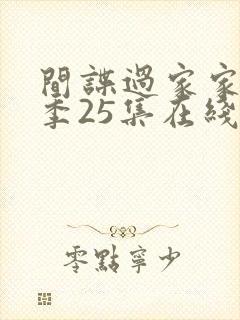 間諜過家家
季25集在綫
零點寧少